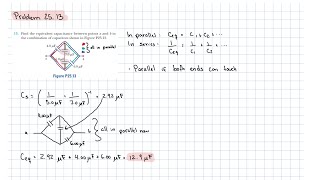 Problem 25.13
13. Find the equivalent capacitance between points a and b in the combination of capacitors shown in Figure P25.13.
all in parallel
Figure P25.13
In parallel: Ceq = C₁ + C₂ + ...
In series: 1/Ceq = 1/C₁ + 1/C₂ + ...
• Parallel if both ends can touch
Cs = (1/5.0μF + 1/7.0μF)⁻¹ = 2.92 μF
a
6.00μF
b
all in parallel now
Ceq = 2.92 μF + 4.00 μF + 6.00 μF = 12.9 μF